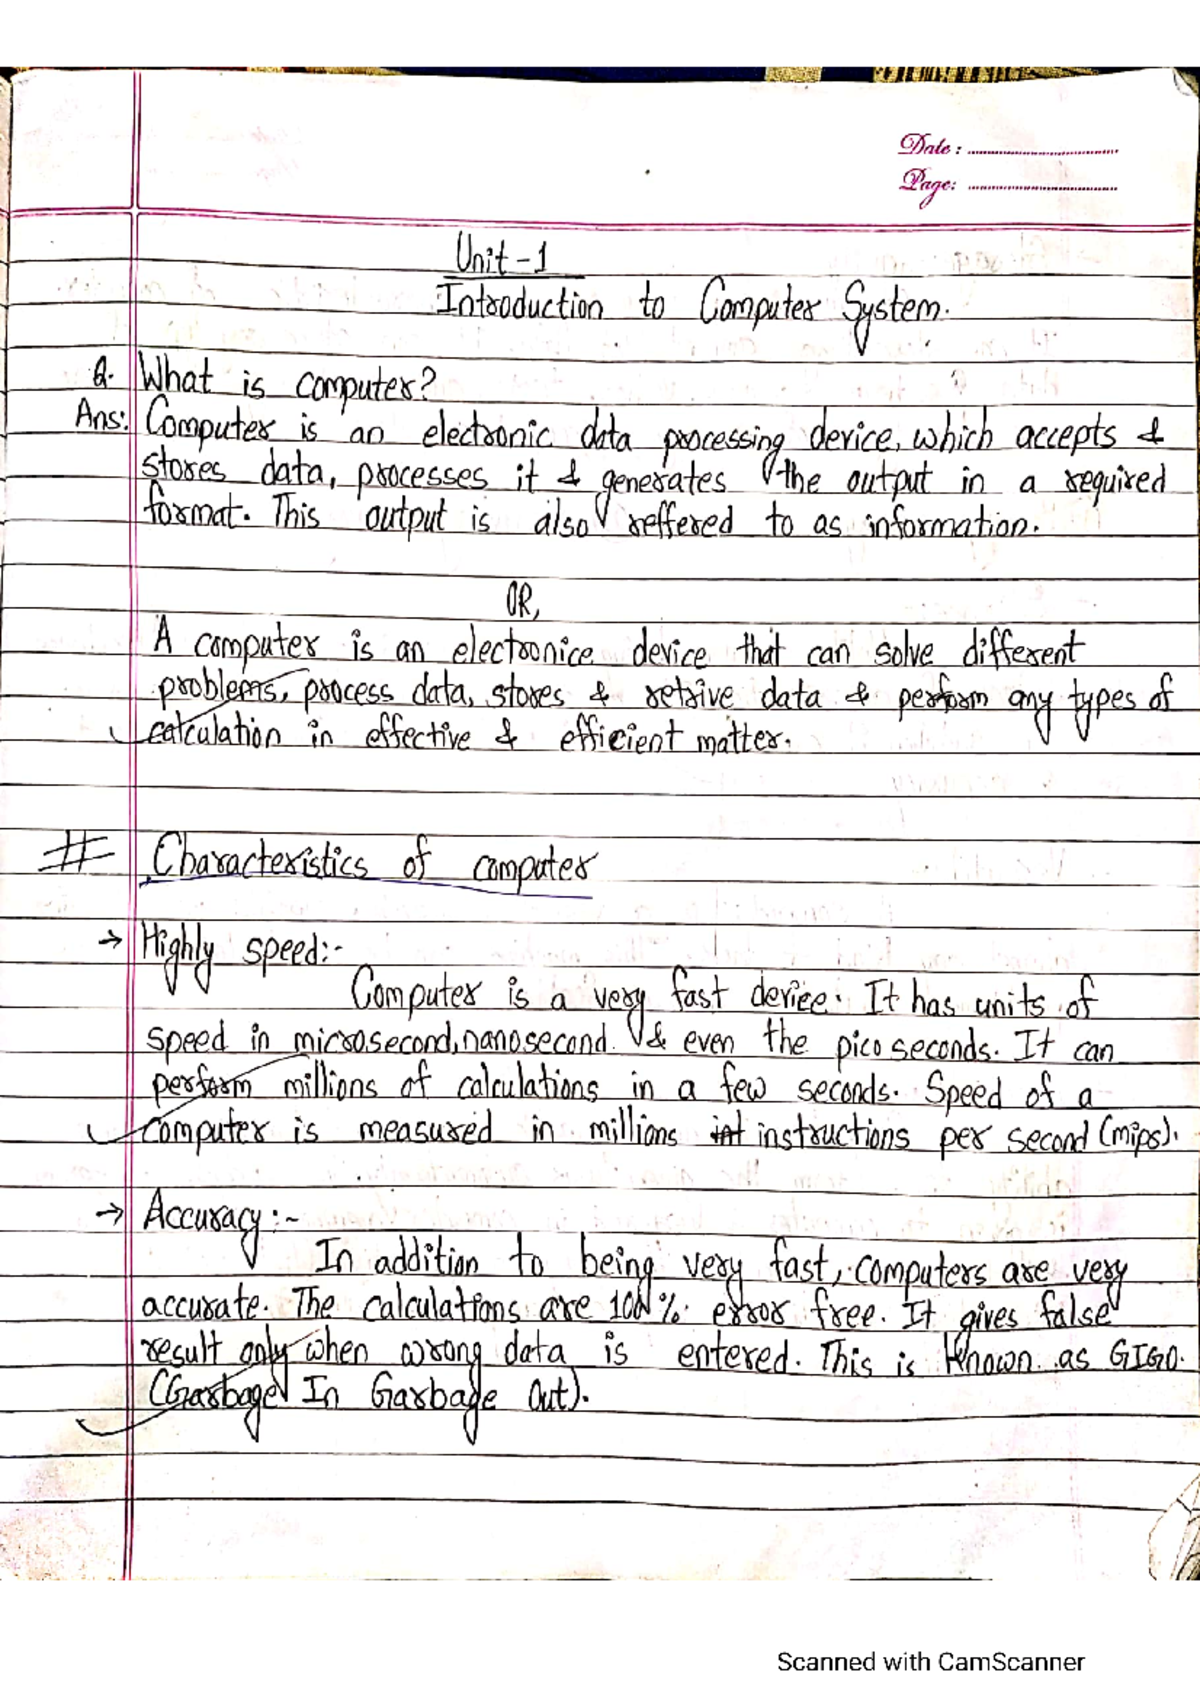 Date :
Page:
Unit - 1
Introduction to Computer System.
Q. What is computer?
Ans: Computer is an electronic data processing device, which accepts &
stores data, processes it & generates the output in a required
format. This output is also reffered to as information.
OR,
A computer is an electronice device that can solve different
problems, process data, stores & retrive data & perform any types of
calculation in effective & efficient matter.
# Characteristics of computer
→ Highly speed:-
Computer is a very fast device. It has units of
speed in microsecond, nanosecond & even the pico seconds. It can
perform millions of calculations in a few seconds. Speed of a
computer is measured in millions int instructions per second (mips).
→ Accuracy :-
In addition to being very fast, computers are very
accurate. The calculations are 100%. error free. It gives false
result only when wrong data is entered. This is Known as GIGO.
(Garbage In Garbage Out).
Scanned with CamScanner